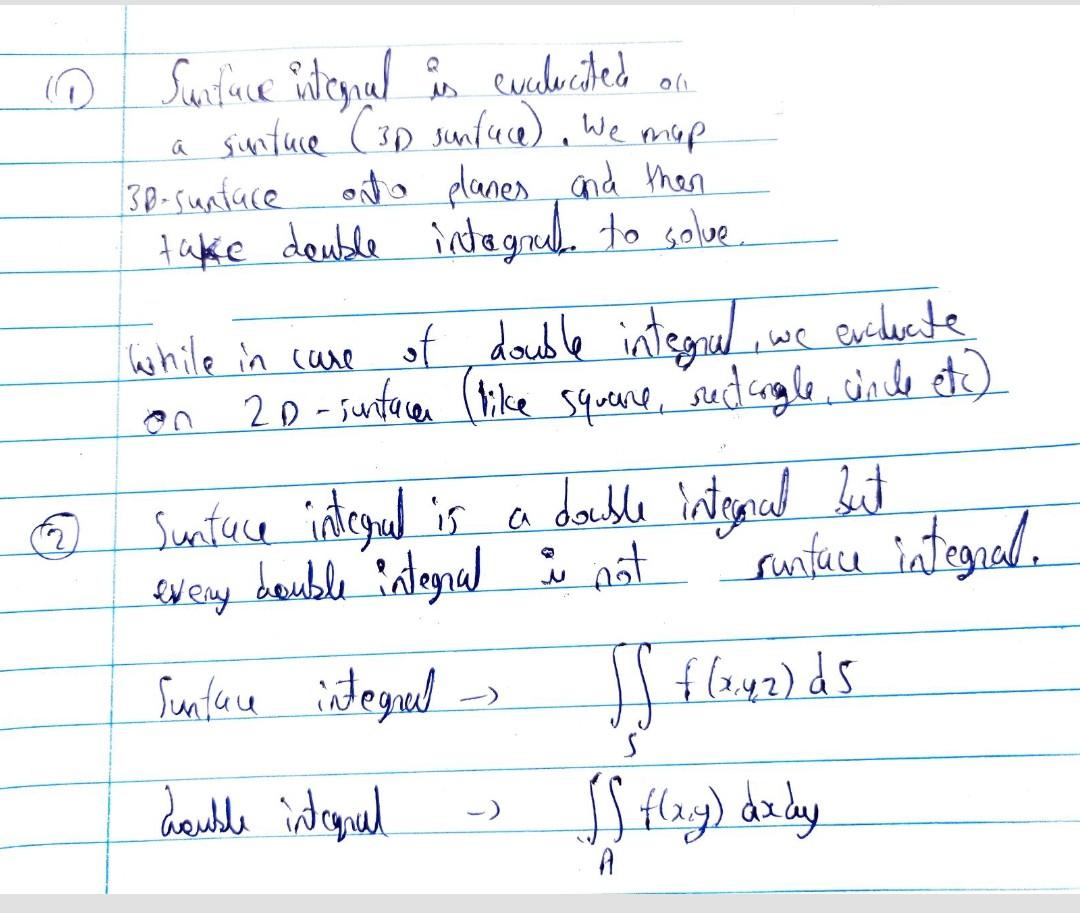 (1) Surface integral is evaluated on
a surface (3D surface). We map
3D-surface onto planes and then
take double integral to solve.
While in case of double integral, we evaluate
on 2D-surfaces (like square, rectangle, circle etc)
(2) Surface integral is a double integral but
every double integral is not surface integral.
Surface integral → ∬ f(x,y,z) dS
S
double integral → ∬ f(x,y) dxdy
A